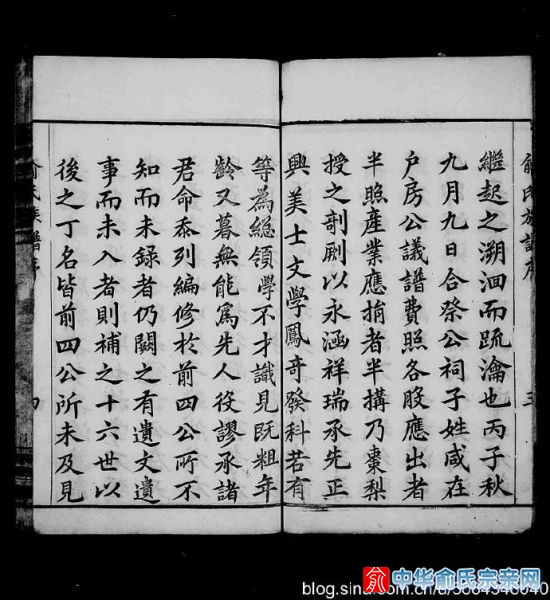 繼起之溯洄而疏瀹也丙子秋
九月九日合祭公祠子姓咸在
户房公議譜費照各股應出者
半照產業應捐者半搆乃棗梨
授之剞劂以永涵祥瑞承先正
興美士文學鳳奇發科若有
等為總領學不才識見既粗年
齡又暮無能為先人役謬承諸
君命忝列編修於前四公所不
知而未録者仍闕之有遺文遺
事而未入者則補之十六世以
後之丁名皆前四公所未及見
俞氏族譜序
中华俞氏宗亲网